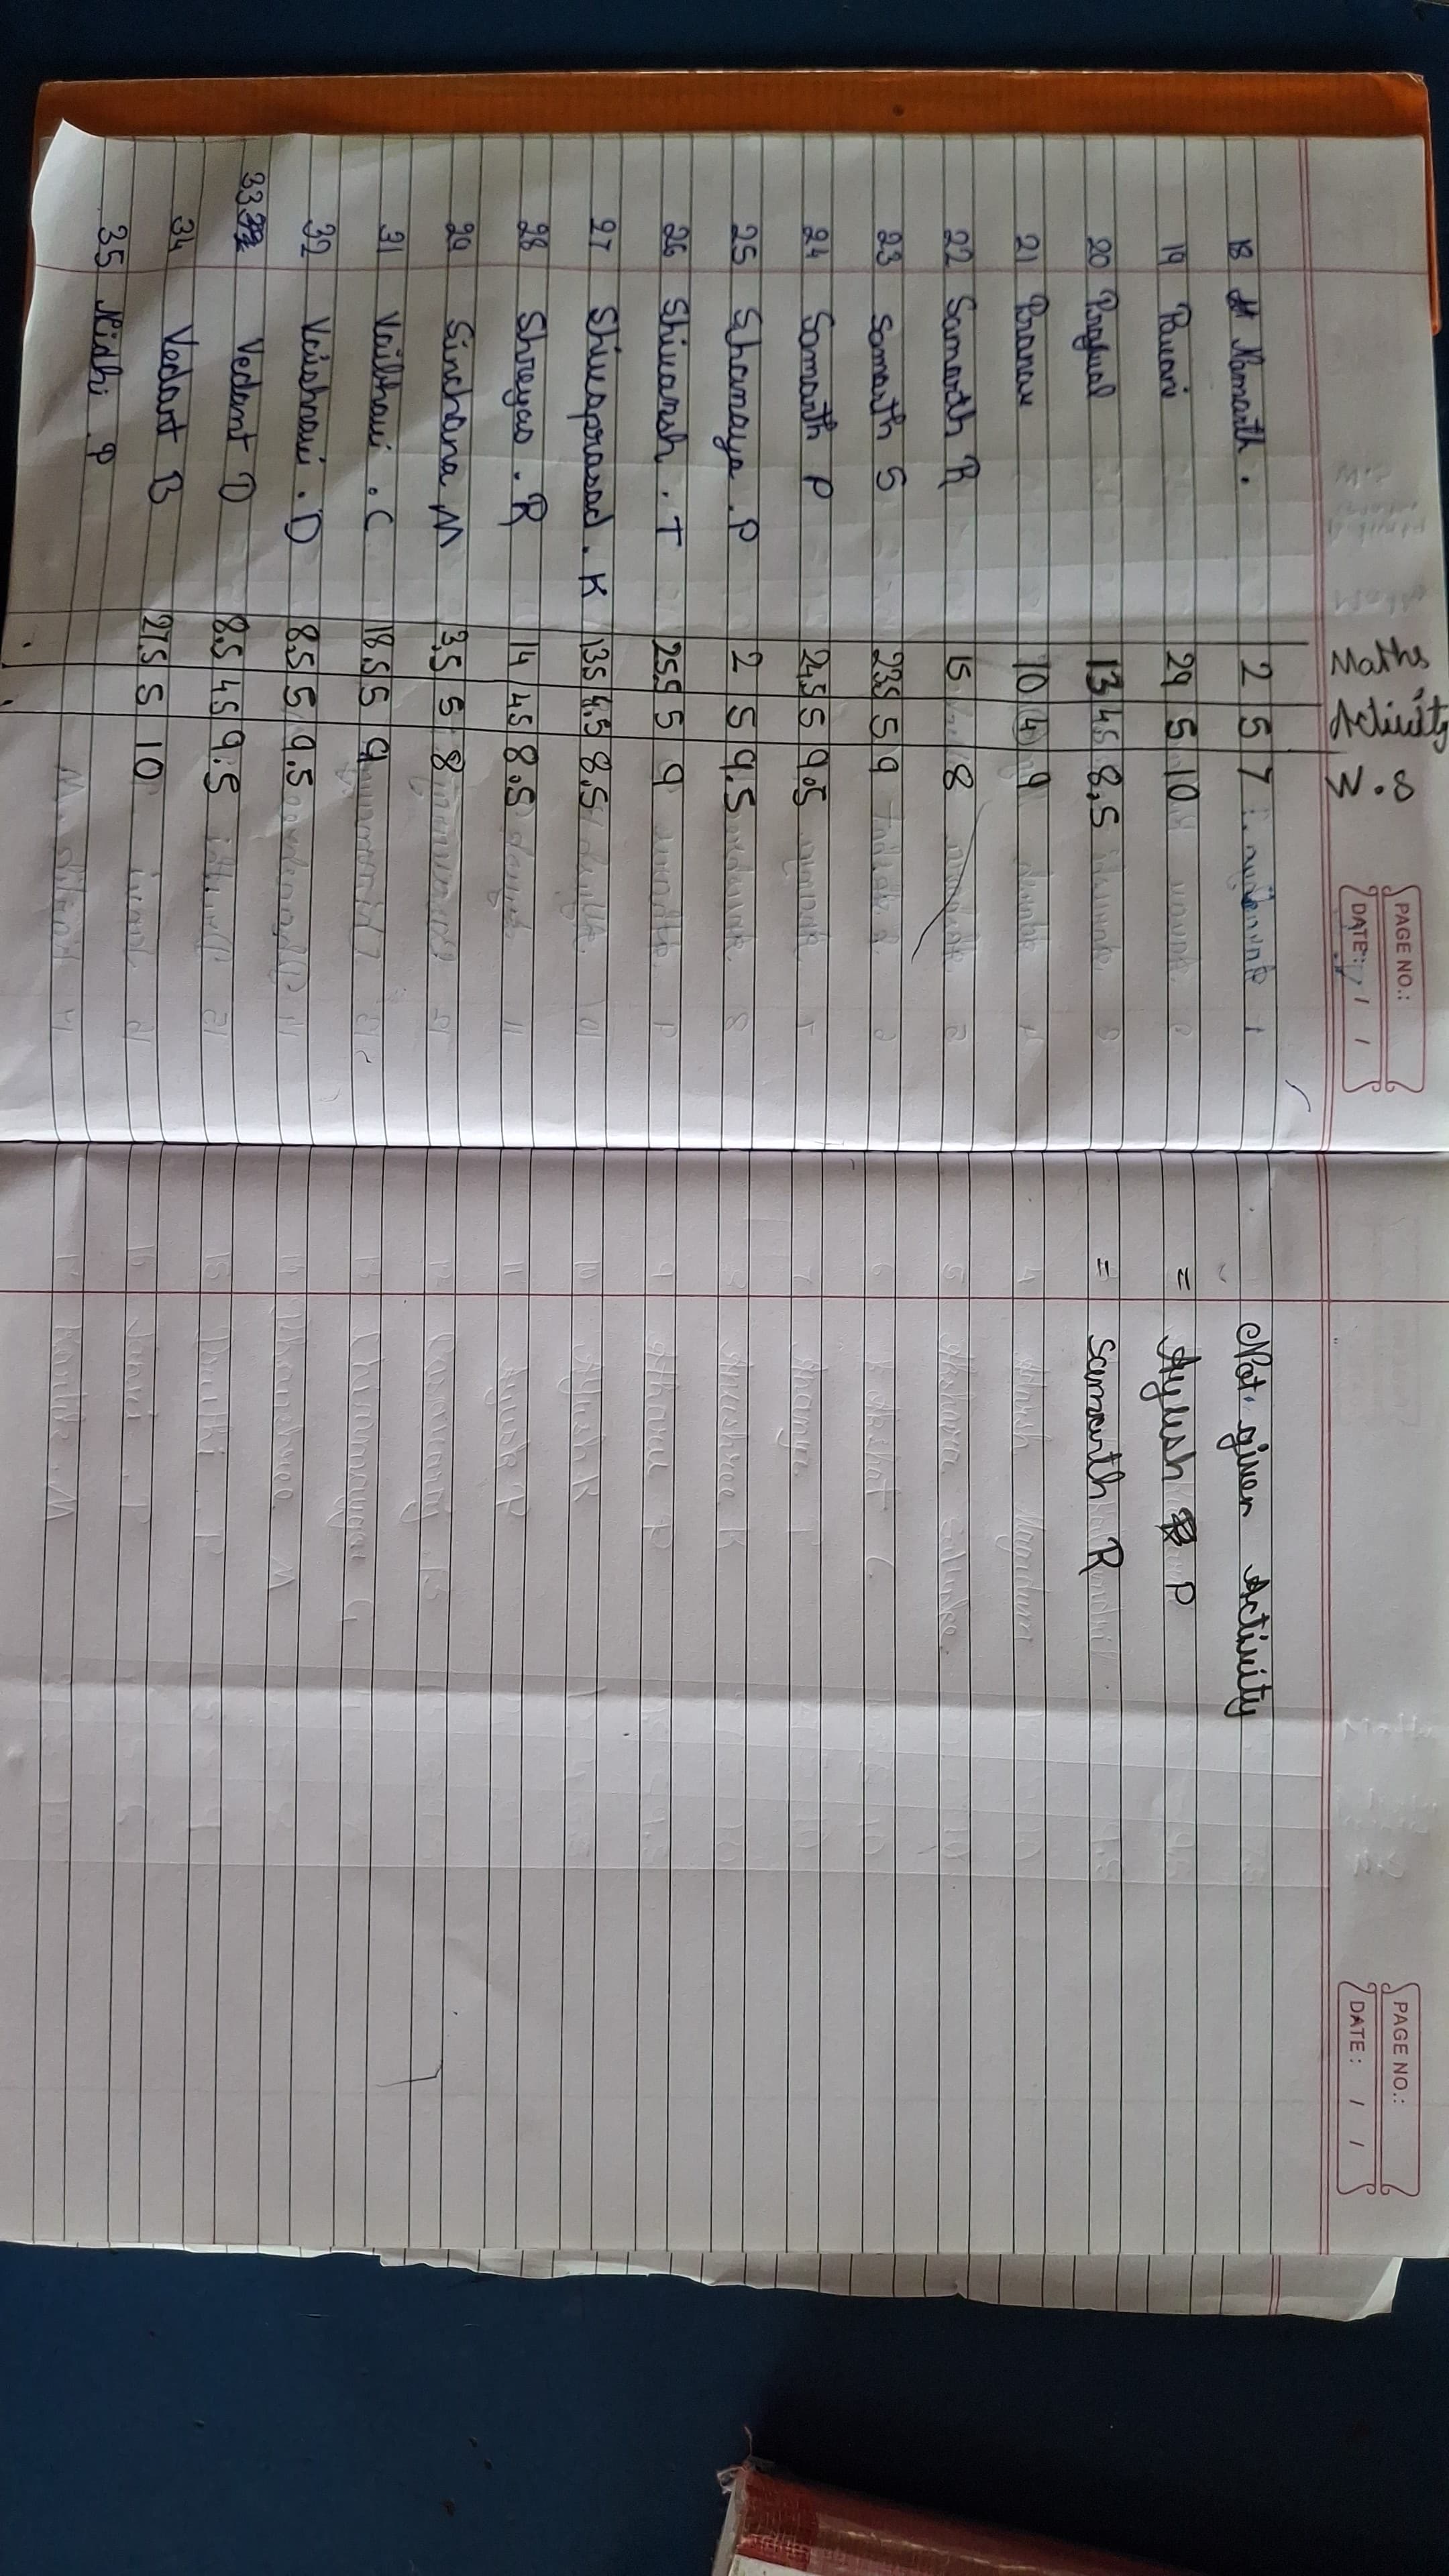 PAGE NO.:
DATE: / /
Maths Activity W.S
18 Namrath . 2 5 7
19 Pavani 29 5 10
20 Prajwal 13 4.5 8.5
21 Pranav 10 4 9
22 Samarth R 15 8
23 Samarth S 23.5 5 9
24 Samarth P 24.5 5 9.5
25 Shamaya .P 2 5 9.5
26 Shivansh . T 25.5 5 9
27 Shivaprasad . K 13.5 4.5 8.5
28 Shreyas . R 14 4.5 8.5
29 Sinchana M 3.5 5 8
31 Vaibhavi . C 18.5 5 9
32 Vaishnavi . D 8.5 5 9.5
33 Vedant D 8.5 4.5 9.5
34 Vedant B 27.5 5 10
35 Nidhi P
PAGE NO.:
DATE: / /
Not given Activity
= Ayush P
= Samarth R